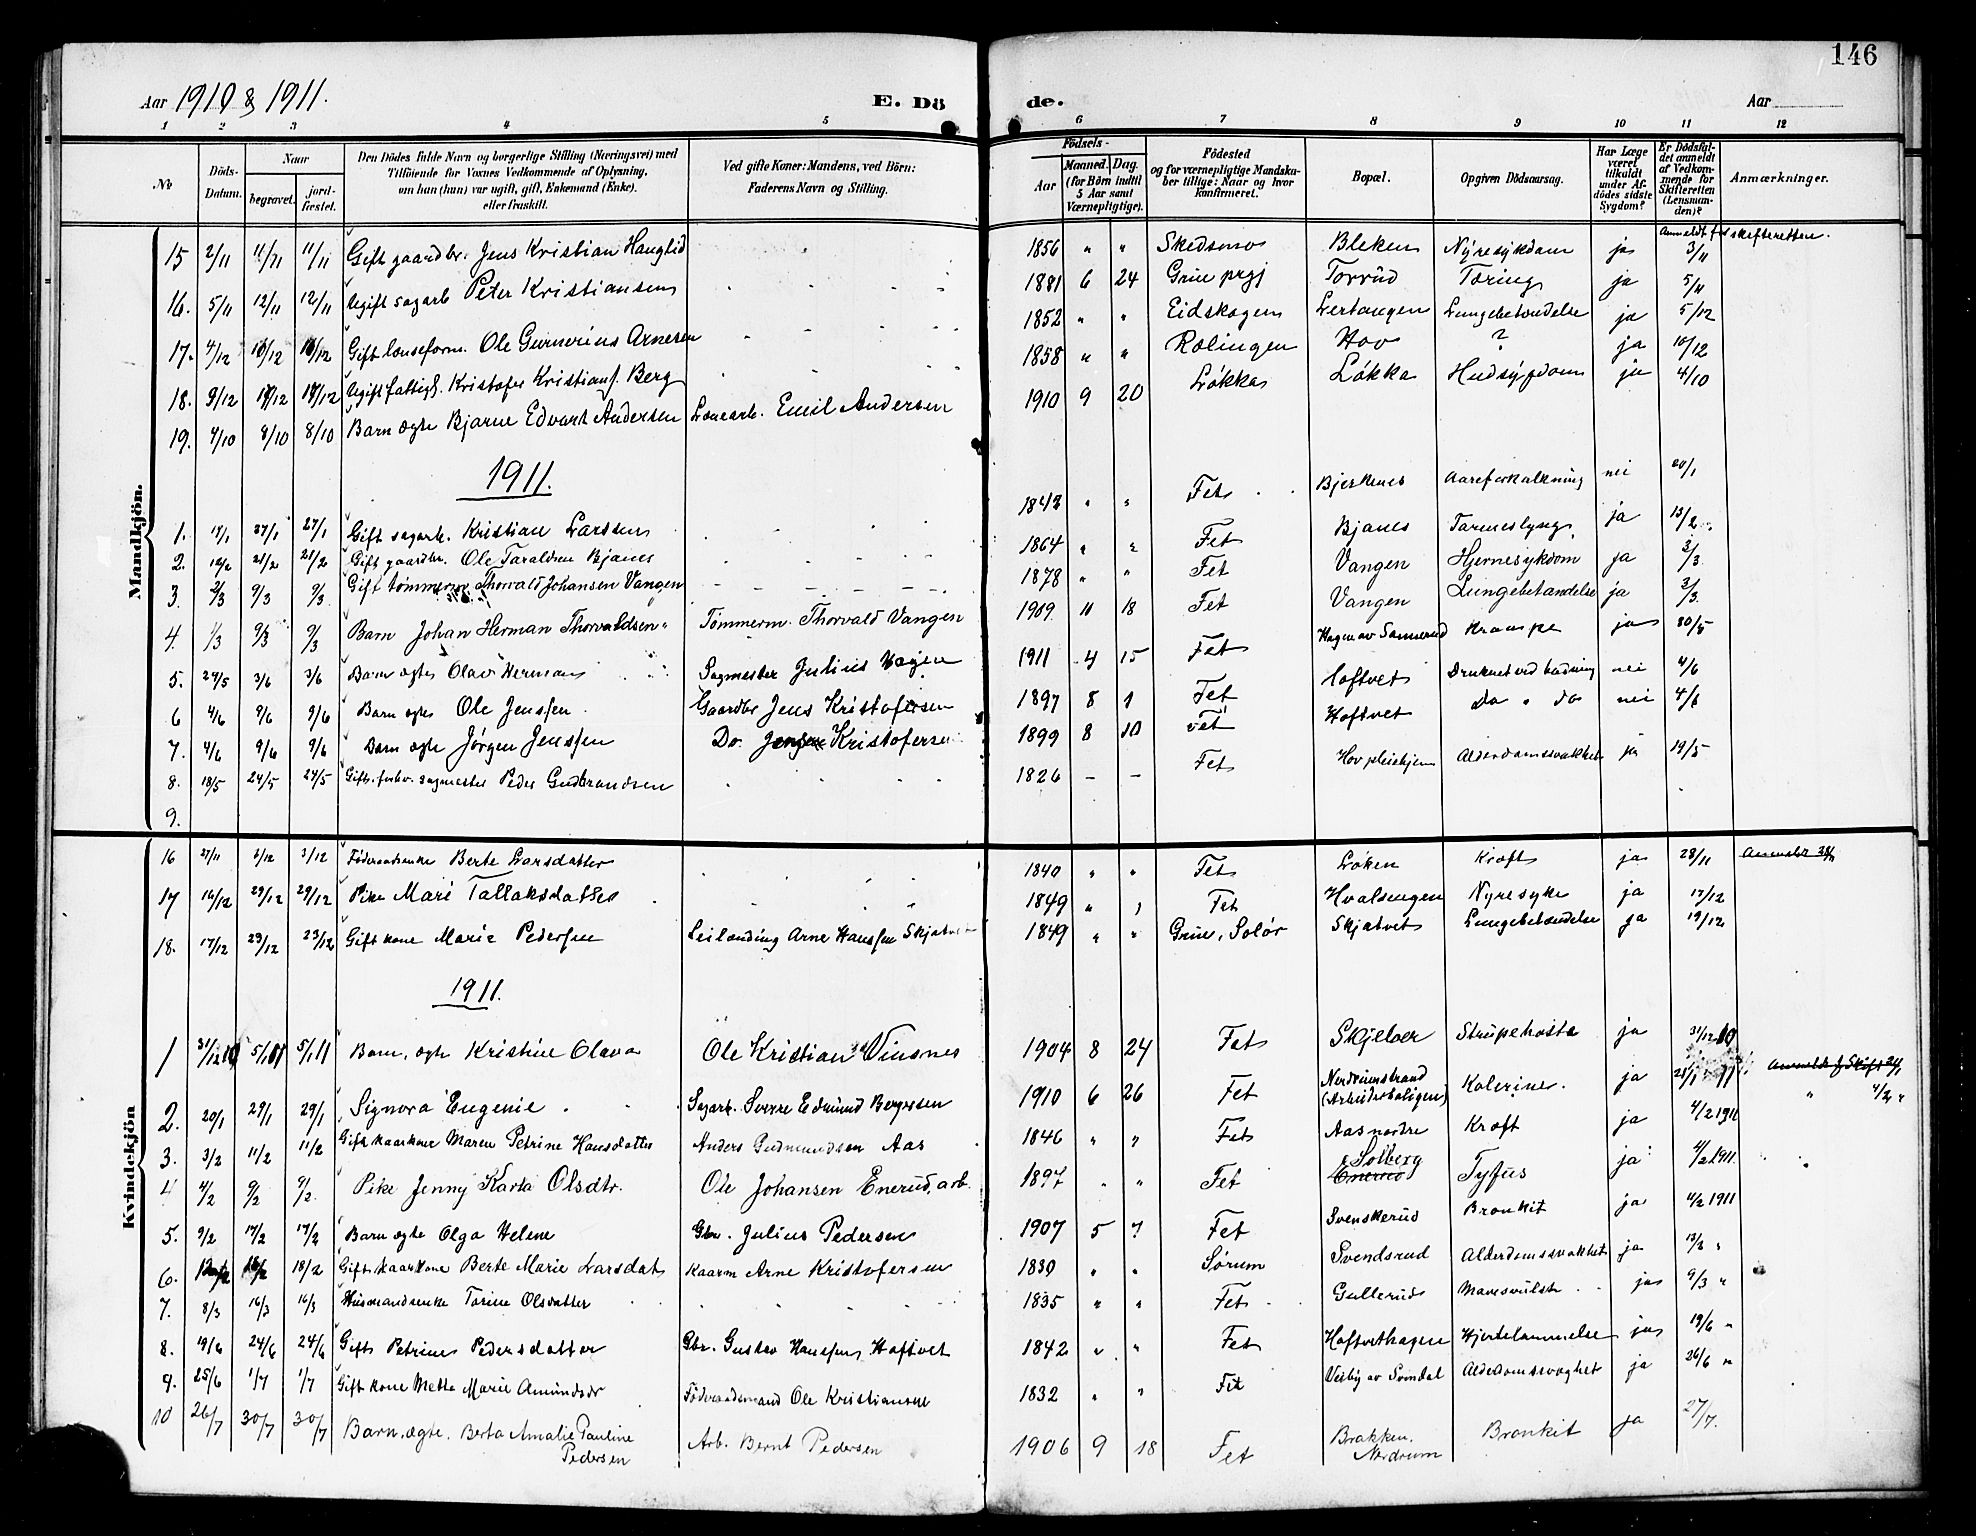 146
Aar 1910 & 1911.
E. Dö
de.
Aar
1 2 3 4 5 6 7 8 9 10 11 12
No
Döds-Datum.
Naar
begravet.
jord-fæstet.
Den Dödes fulde Navn og borgerlige Stilling (Næringsvei) med Tilföiende for Voxnes Vedkommende af Oplysning, om han (hun) var ugift, gift, Enkemand (Enke), eller fraskilt.
Ved gifte Koner: Mandens, ved Börn: Faderens Navn og Stilling.
Födsels-
Aar
Maaned. Dag.
(for Börn indtil 5 Aar samt Værnepligtige).
Födested og for værnepligtige Mandskaber tillige: Naar og hvor konfirmeret.
Bopæl.
Opgiven Dödsaarsag.
Har Læge været tilkaldt under Afdödes sidste Sygdom?
Er Dödsfaldet anmeldt af Vedkommende for Skifteretten (Lensmanden)?
Anmærkninger.
Mandkjön.
Anmeldt f. skifteretten.
15 2/11 11/11 11/11 Gift gaardbr. Jens Kristian Hauglid 1856 " " Skedsmo Bleken Nyresykdom ja 3/11
16. 5/11 12/11 12/11 Ugift sagarb Peter Kristiansen 1881 6 24 Grue prgj Torrud Tæring ja 5/11
17. 4/12 10/12 10/12 Gift lænseform. Ole Gunerius Arnesen 1852 " " Eidskogen Lertangen Lungebetændelse ja 5/12
18. 9/12 17/12 17/12 Ugift fattigl. Kristofer Kristiansf. Berg 1858 " " Rælingen Hov ? ja 10/12
19. 4/10 8/10 8/10 Barn ægte Bjarne Edvart Andersen Lænsearb. Emil Andersen 1910 9 20 Løkka Løkka Hudsygdom ja 4/10
1911.
1. 17/1 27/1 27/1 Gift sagarb. Kristian Larssen 1843 " " Fet Bjerkenes Aareforkalkning nei 20/1
2. 12/2 21/2 21/2 Gift gaardbr. Ole Taraldsen Bjanes 1864 " " Fet Bjanes Tarmeslyng ja 13/2
3. 2/3 9/3 9/3 Gift tømmerm Thorvald Johansen Vangen 1878 " " Fet Vangen Hjernesykdom ja 3/3
4. 1/3 9/3 9/3 Barn Johan Herman Thorvaldsen Tømmerm. Thorvald Vangen 1909 11 18 Fet Vangen Lungebetændelse ja 3/3
5. 29/5 3/6 3/6 Barn ægte Olav Herman Sagmester Julius Hagen 1911 4 15 Fet Hagen av Sannerud Krampe ja 30/5
6 4/6 9/6 9/6 Barn ægte Ole Jenssen Gaardbr Jens Kristofersen 1897 8 1 Fet Hoftvet Druknet ved badning nei 4/6
7. 4/6 9/6 9/6 Barn ægte Jørgen Jenssen Do. Jens Kristofersen 1899 8 10 Fet Hoftvet Do " do nei 4/6
8. 18/5 24/5 24/5 Gift. forhv. sagmester Peder Gudbrandsen 1826 - - Fet Hov pleiehjem Alderdomssvakhet ja 19/5
9.
Kvindekjön
16 27/11 3/12 3/12 Føderaadsenke Berte Larsdatter 1840 " " Fet Løken Kræft ja 28/11 Anmeldt 28/11
17 16/12 29/12 29/12 Pike Mari Tallaksdatter 1849 " " Fet Hvalsengen Nyresyke ja 17/12
18. 17/12 23/12 23/12 Gift kone Marie Pedersen Leilænding Arne Hanssen Skjatvet 1849 " " Grue, Solør Skjatvet Lungebetændelse ja 19/12
1911.
1 31/12 10 5/1 11 5/1 11 Barn, ægte Kristine Olava Ole Kristian Vinsnes 1904 8 24 Fet Skjelver Strupehoste ja 31/12 10
2. 20/1 29/1 29/1 Signora Eugenie Sagarb. Sverre Edmund Bergersen 1910 6 26 Fet Nordreimstrand (Arbeiderboligen) Kolerine. ja 23/1 11 Anmeldt f Skift 24/1
3. 3/2 11/2 11/2 Gift kaarkone Maren Petrine Hansdatter Anders Gudmundsen Aas 1846 " " Fet Aas nordre Kræft ja 4/2 1911 " 4/2 "
4 4/2 9/2 9/2 Pike Jenny Karla Olsdtr. Ole Johansen Enerud, arb. 1897 " " Fet Enerud Solberg Tyfus ja 4/2 1911. "
5. 9/2 17/2 17/2 Barn ægte Olga Helene Gbr. Julius Pedersen 1907 5 7 Fet Svenskerud Bronkit ja 4/2 1911
6. 12/2 18/2 18/2 Gift kaarkone Berte Marie Larsdat Kaarm Arne Kristofersen 1830 " " Sørum Svendsrud Alderdomssvakhet ja 13/2 "
7. 8/3 16/3 16/3 Husmandsenke Torine Olsdatter 1835 " " Fet Gullerud Mavesvulst ja 9/3 "
8. 19/6 24/6 24/6 Gift Petrine Pedersdatter Gbr. Gustav Hanssen, Hoftvet 1842 " " Fet Hoftvethagen Hjertelammelse ja 19/6 "
9. 25/6 1/7 1/7 Gift kone Mette Marie Amundsdr Føderaadsmand Ole Kristiansen 1832 " " Fet Visby av Svindal Alderdomssvaghet ja 26/6 "
10 26/7 30/7 30/7 Barn, ægte. Berta Amalie Pauline Pedersen Arb. Bernt Pedersen 1906 9 18 Fet Brakken, Nordrum Bronkit ja 27/7.